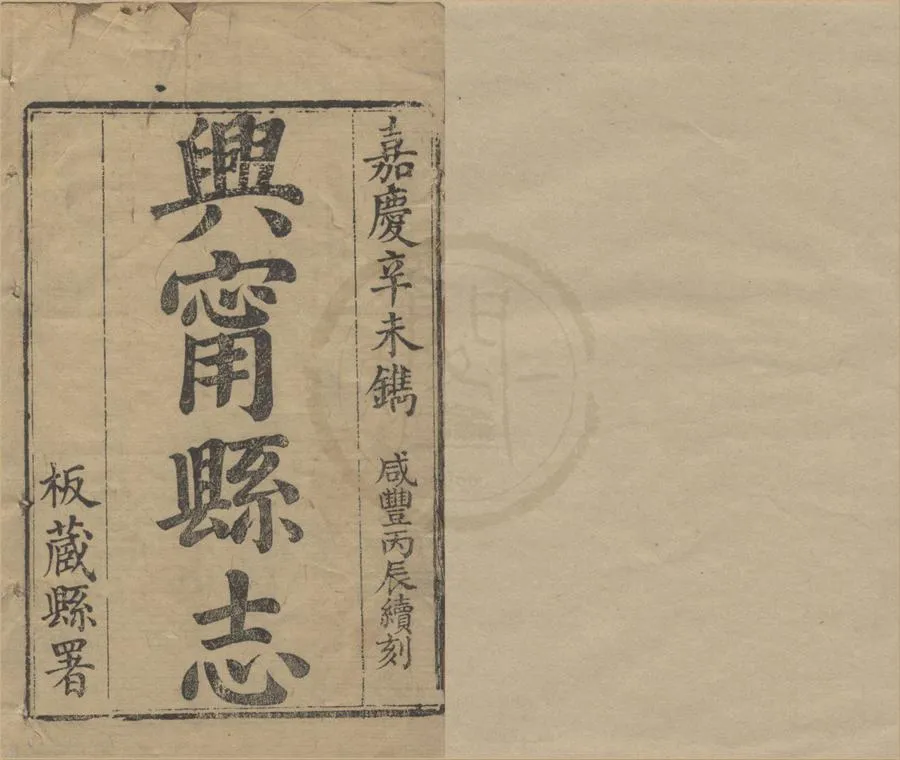 嘉慶辛未鐫 咸豐丙辰續刻
興甯縣志
板藏縣署